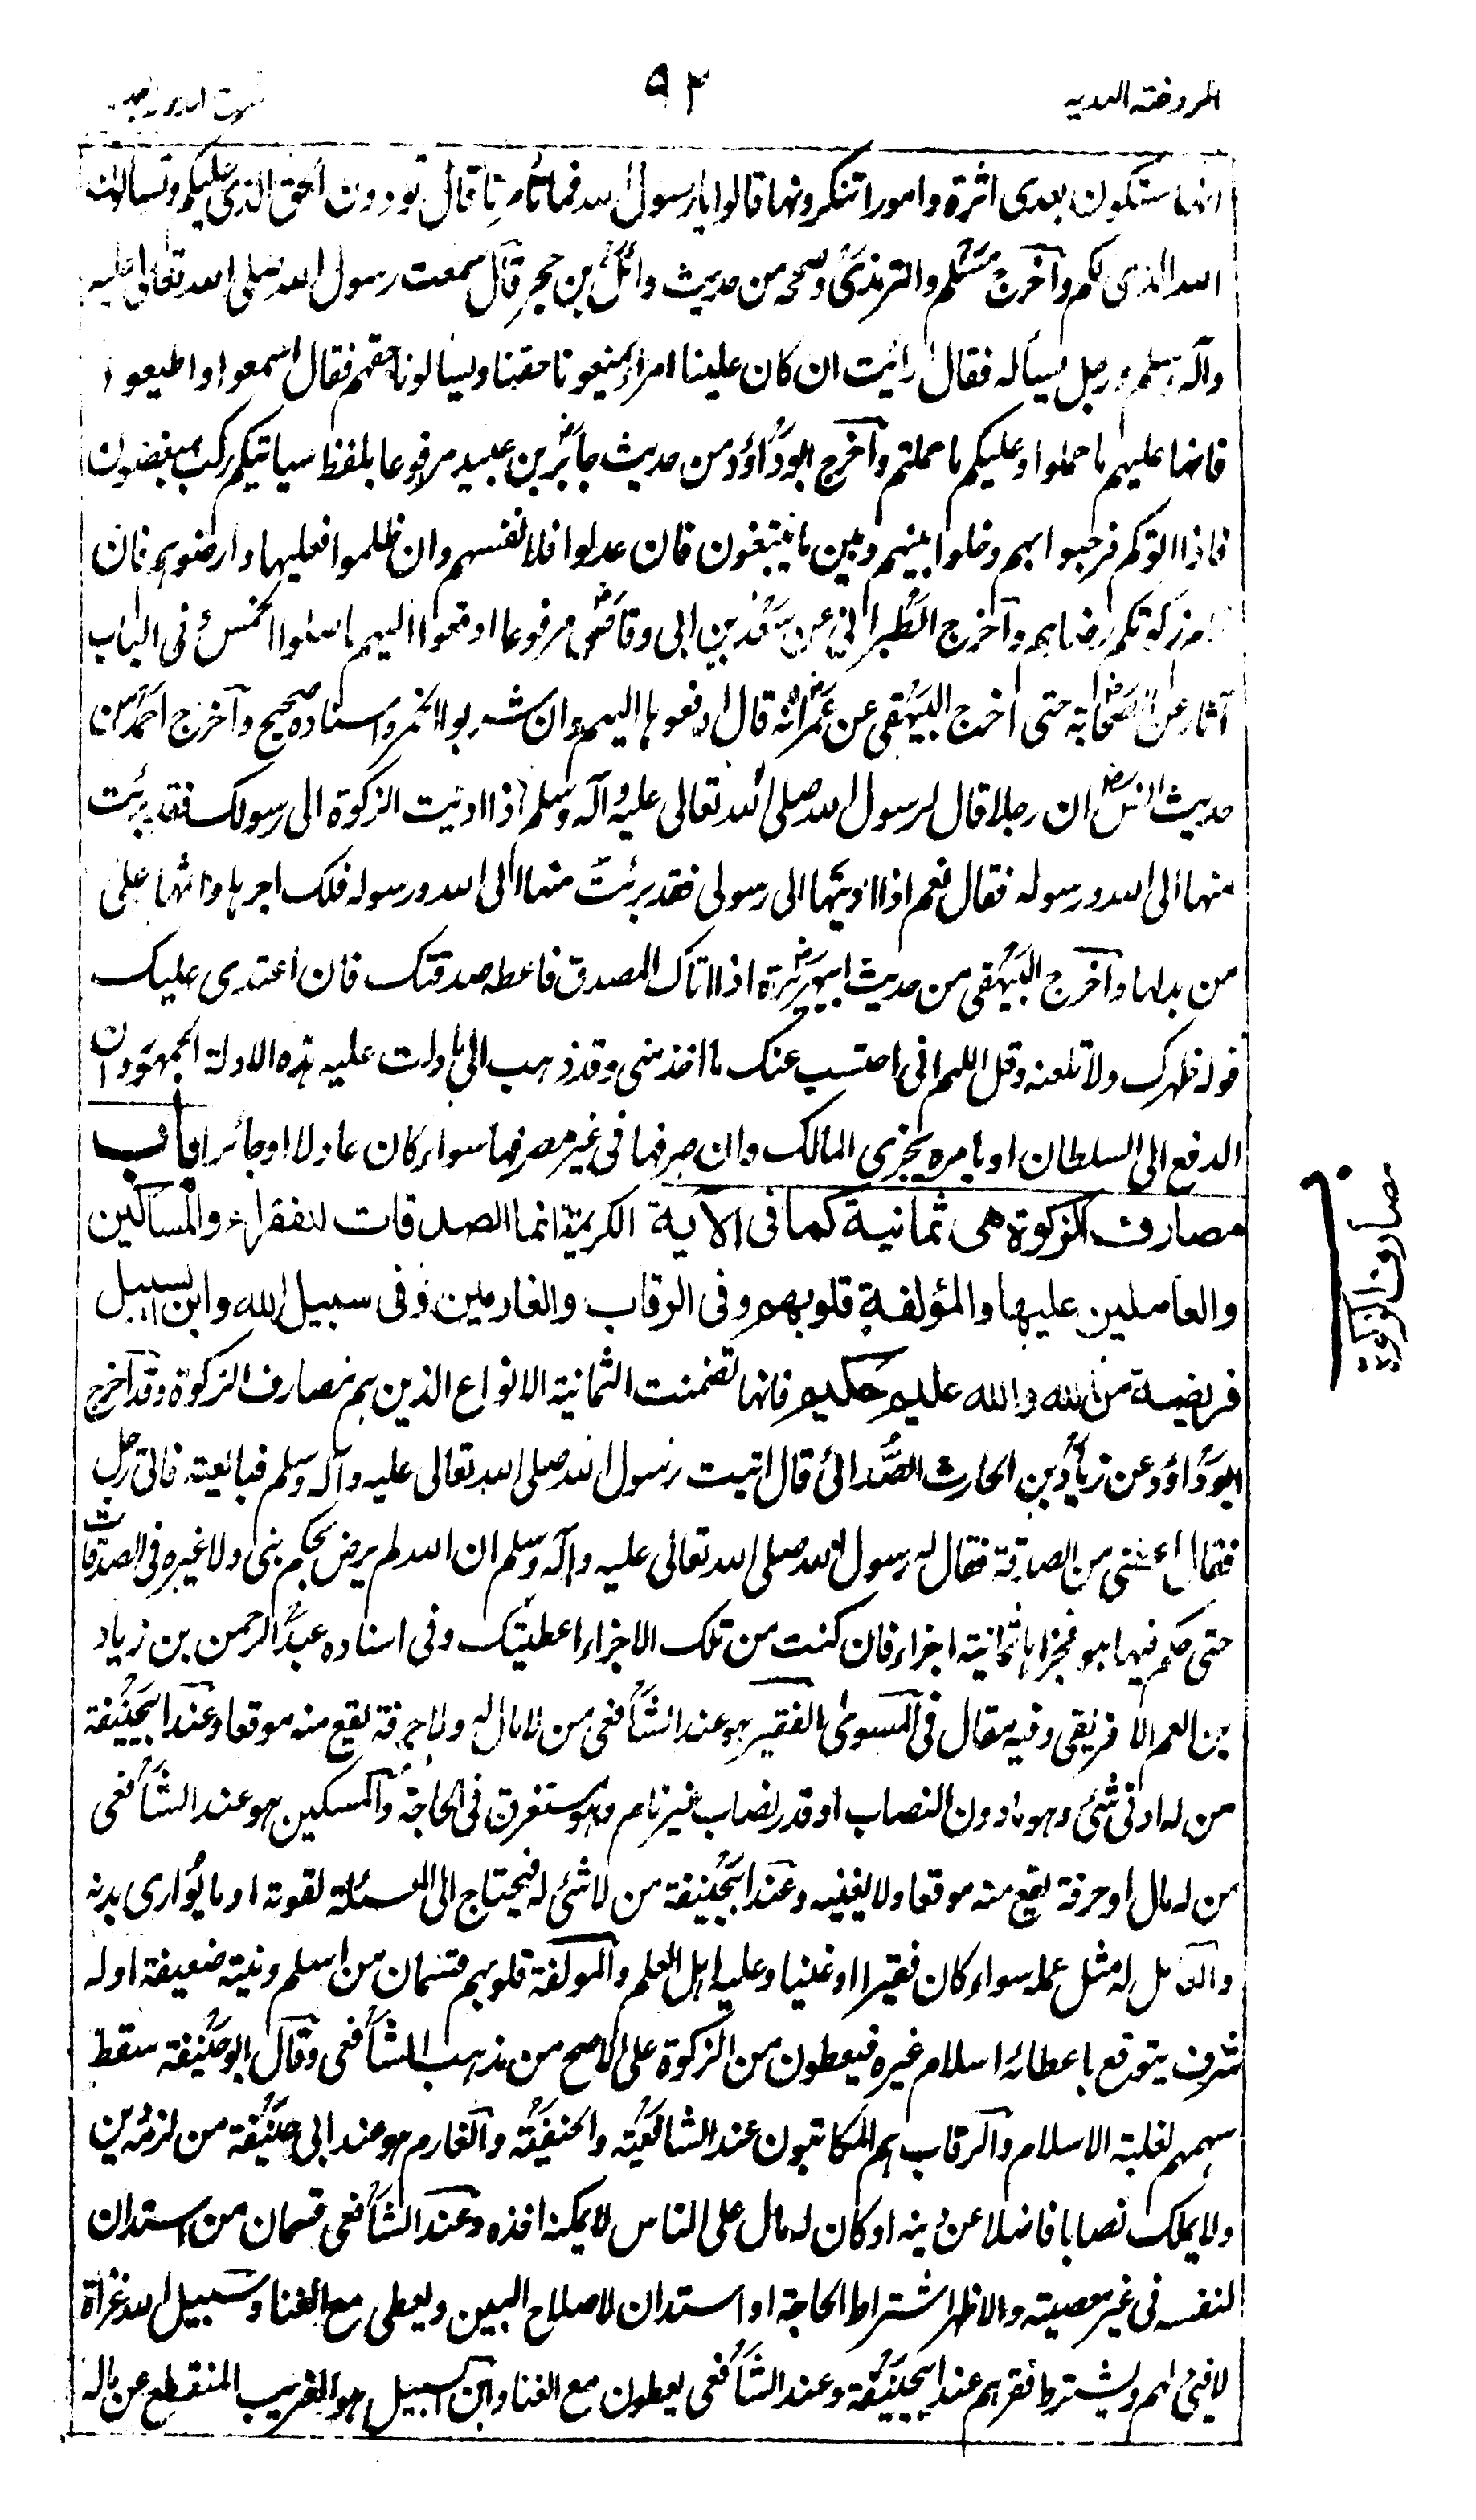 الروضة الندیه
۹۲
انها ستكون بعدى اثرة وامورا تنكرونها قالوا يا رسول الله فما تأمرنا قال تودون الحق الذى عليكم وتسألون
الله الذى لكم وآخرج مسلم والترمذى وصححه من حديث وائل بن حجر قال سمعت رسول الله صلى الله تعالى عليه
وآله وسلم ورجل يسأله فقال ارأيت ان كان علينا امراء يمنعونا حقنا ويسألونا حقهم فقال اسمعوا واطيعوا
فانما عليهم ما حملوا وعليكم ما حملتم وآخرج ابوداؤد من حديث جابر بن عبيد مرفوعا بلفظ سياتيكم ركب مبغضون
فاذا اتوكم فرحبوا بهم وخلوا بينهم وبين ما يبتغون فان عدلوا فلانفسهم وان ظلموا فعليها وارضوهم فان
زكوتكم رضاهم وآخرج الطبرانى عن سعد بن ابى وقاص مرفوعا ادفعوا اليهم ما صلوا الخمس وفى الباب
آثار عن الصحابة حتى اخرج البيهقى عن عمر انه قال ادفعوها اليهم وان شربوا الخمر واسناده صحيح وآخرج احمد من
حديث انس ان رجلا قال لرسول الله صلى الله تعالى عليه وآله وسلم اذا اديت الزكوة الى رسولك فقد برئت
منها الى الله ورسوله فقال نعم اذا اديتها الى رسولى فقد برئت منها الى الله ورسوله فلك اجرها واثمها على
من بدلها وآخرج البيهقى من حديث ابيهريرة اذا اتاك المصدق فاعطه صدقتك فان اعتدى عليك
فوله ظهرك ولا تلعنه وقل اللهم انى احتسب عندك ما اخذ منى وقد ذهب الى ما دلت عليه هذه الادلة الجمهور وان
الدفع الى السلطان او بامره يجزى المالك وان صرفها فى غير مصرفها سواء كان عادلا او جائرا باب
مصارف الزكوة هى ثمانية كما فى الآية الكريمة انما الصدقات للفقراء والمساكين
والعاملين عليها والمؤلفة قلوبهم وفى الرقاب والغارمين وفى سبيل الله وابن السبيل
فريضة من الله والله عليم حكيم فانها تضمنت الثمانية الانواع الذين هم مصارف الزكوة وقد آخرج
ابوداؤد عن زياد بن الحارث الصدائى قال اتيت رسول الله صلى الله تعالى عليه وآله وسلم فبايعته فاتى رجل
فقال اعطنى من الصدقة فقال له رسول الله صلى الله تعالى عليه وآله وسلم ان الله لم يرض بحكم نبى ولا غيره فى الصدقات
حتى حكم فيها هو فجزاها ثمانية اجزاء فان كنت من تلك الاجزاء اعطيتك وفى اسناده عبد الرحمن بن زياد
بن انعم الافريقى وفيه مقال فى المسوى الفقير هو عند الشافعى من لا مال له ولا حرفة تقع منه موقعا وعند ابيحنيفة
من له ادنى شئ وهو ما دون النصاب او قدر نصاب غير نام وهو مستغرق فى الحاجة والمسكين هو عند الشافعى
من له مال او حرفة تقع منه موقعا ولا يغنيه وعند ابيحنيفة من لا شئ له فيحتاج الى المسئلة لقوته او ما يوارى بدنه
والعامل له مثل عمله سواء كان فقيرا او غنيا وعليه اهل العلم والمولفة قلوبهم قسمان من اسلم ونيته ضعيفة او له
شرف يتوقع باعطائه اسلام غيره فيعطون من الزكوة على الاصح من مذهب الشافعى وقال ابوحنيفة سقط
سهمهم لغلبة الاسلام والرقاب هم المكاتبون عند الشافعية والحنفية والغارم هو عند ابى حنيفة من لزمه دين
ولا يملك نصابا فاضلا عن دينه او كان له مال على الناس لا يمكنه اخذه وعند الشافعى قسمان من استدان
لنفسه فى غير معصية والاظهر اشتراط الحاجة او استدان لاصلاح البين ويعطى مع الغنا وسبيل الله غزاة
لا فئ لهم ويشترط فقرهم عند ابيحنيفة وعند الشافعى يعطون مع الغنا وابن السبيل هو الغريب المنقطع عن ماله
مصارف الزكوة